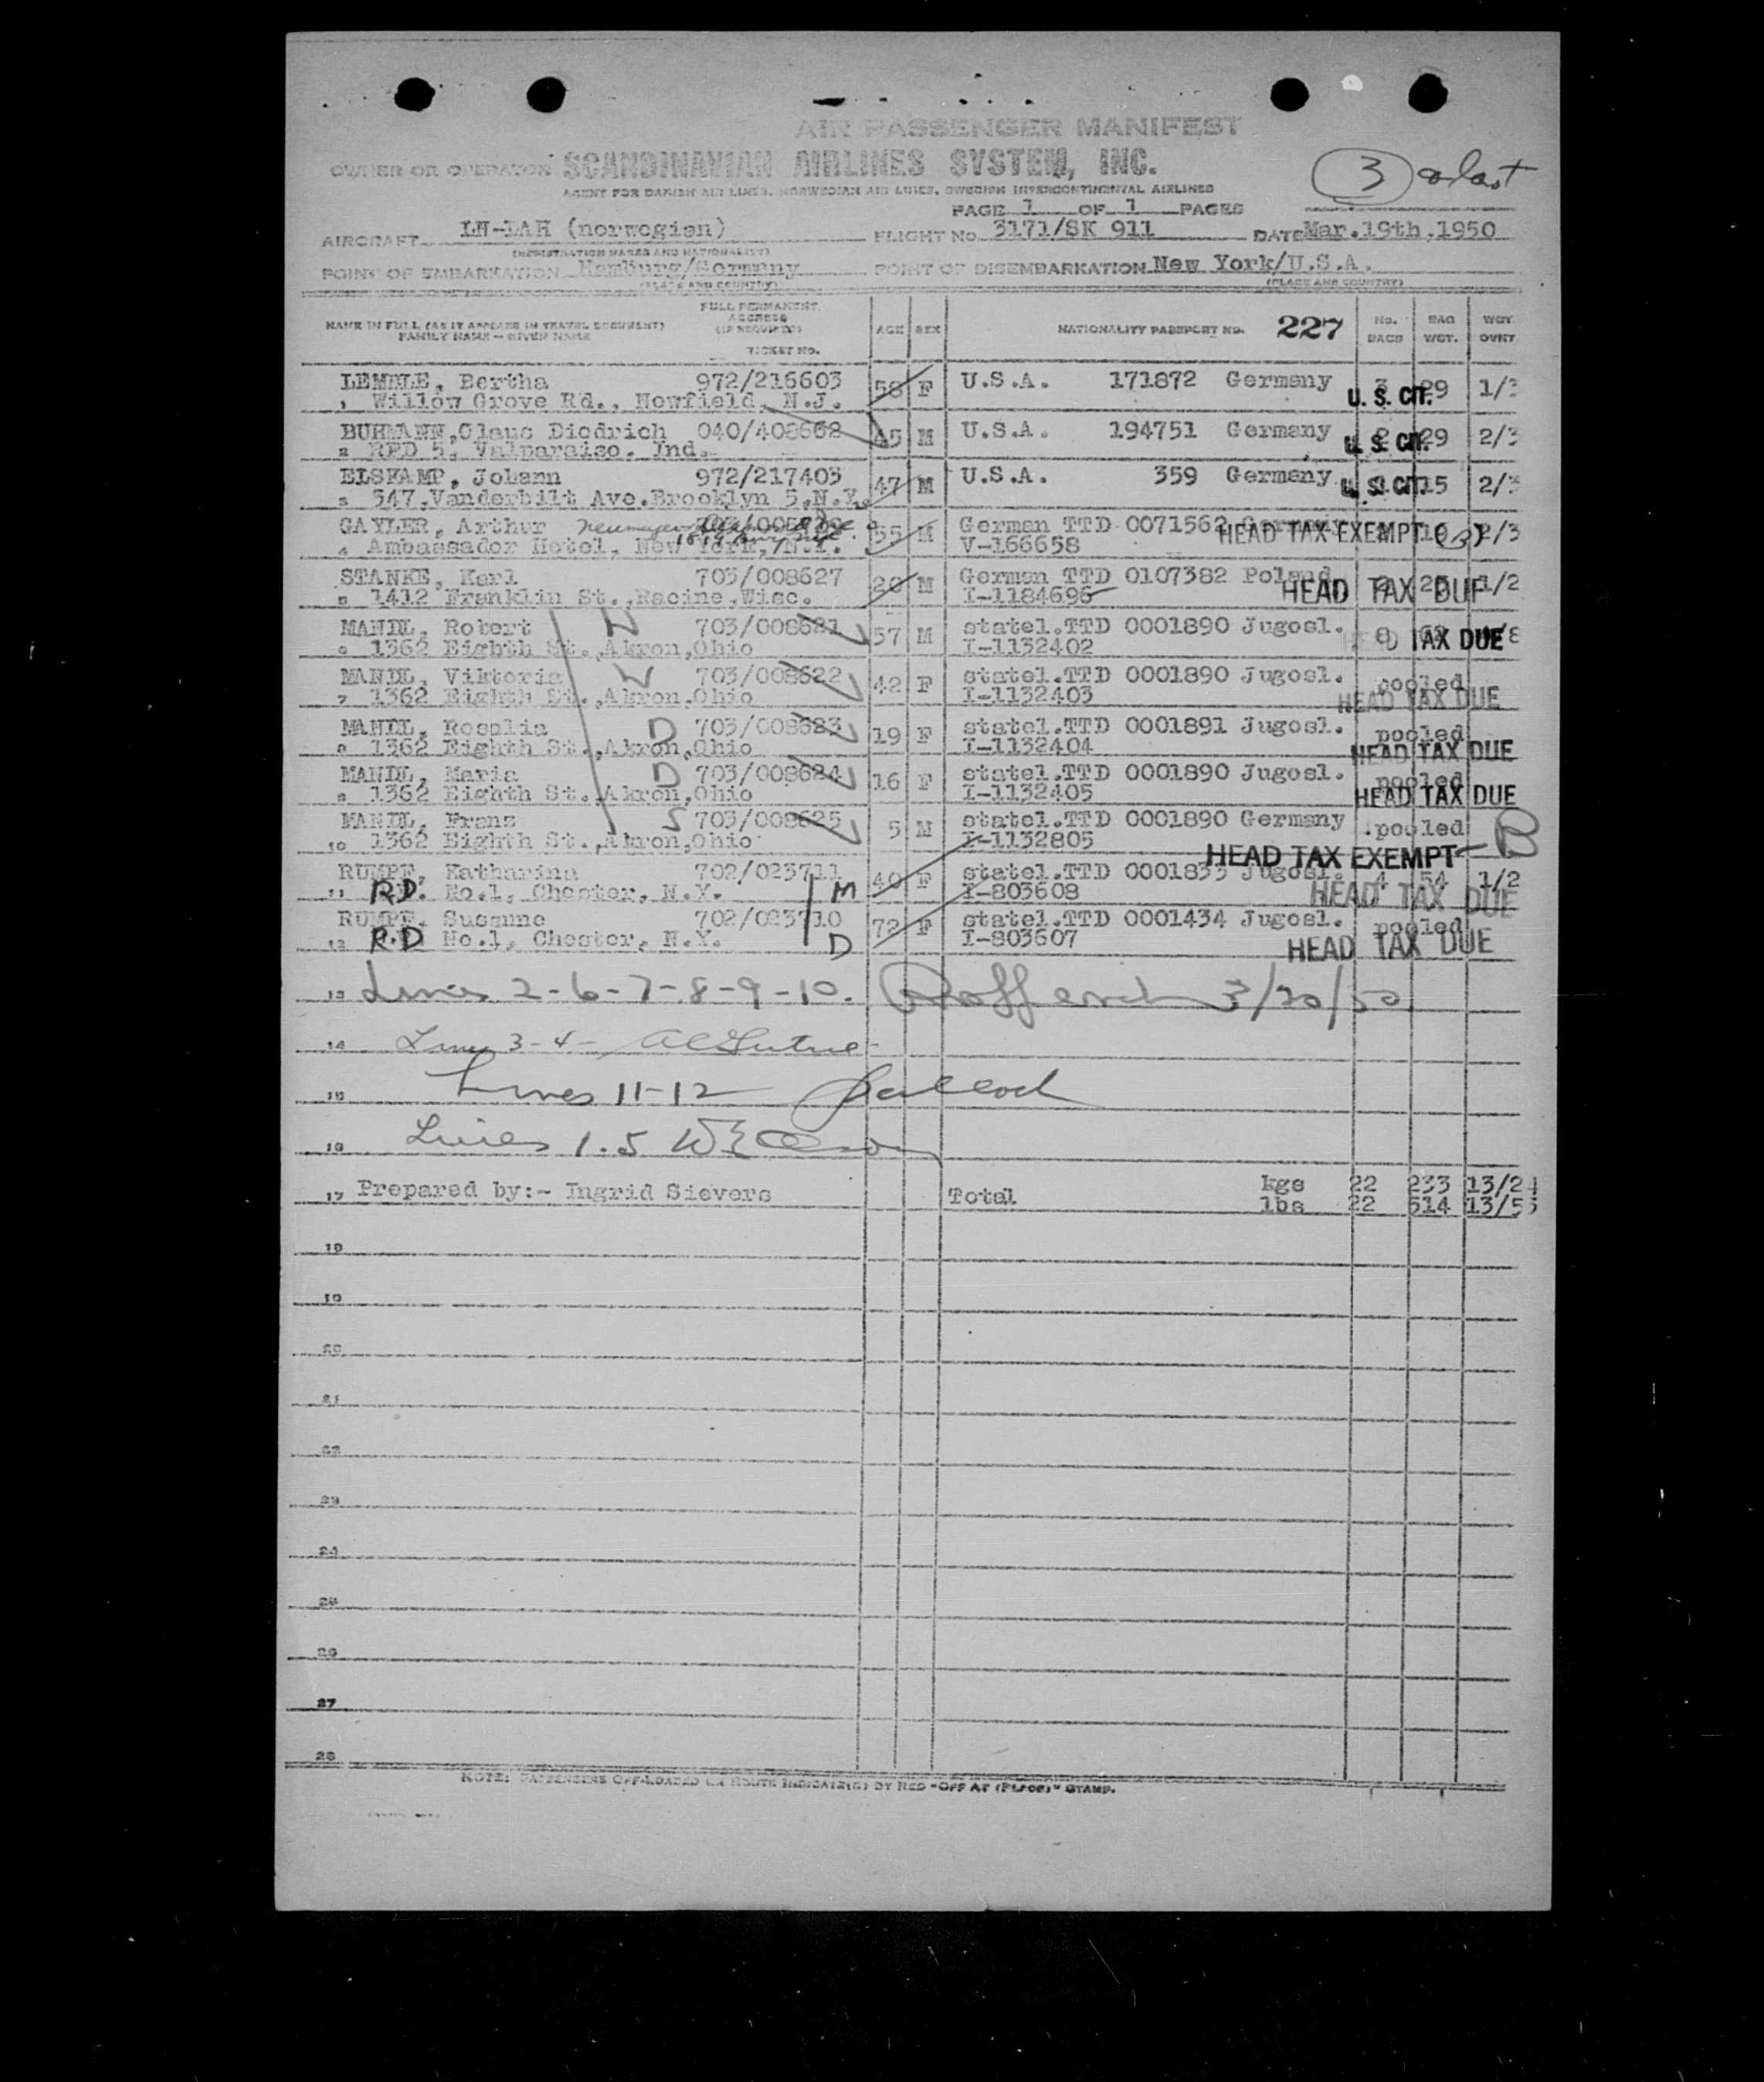 AIR PASSENGER MANIFEST
OWNER OR OPERATOR SCANDINAVIAN AIRLINES SYSTEM, INC.
AGENT FOR DANISH AIR LINES, NORWEGIAN AIR LINES, SWEDISH INTERCONTINENTAL AIRLINES
3 & last
PAGE 1 OF 1 PAGES
AIRCRAFT (norwegian) FLIGHT No. 3171/SK 911 DATE Mar.19th,1950
(REGISTRATION MARKS AND NATIONALITY)
POINT OF EMBARKATION Hamburg/Germany POINT OF DISEMBARKATION New York/U.S.A.
(PLACE AND COUNTRY) (PLACE AND COUNTRY)
NAME IN FULL (AS IT APPEARS IN TRAVEL DOCUMENT) FAMILY NAME - GIVEN NAME FULL PERMANENT ADDRESS (IF REQUIRED) TICKET NO. AGE SEX NATIONALITY PASSPORT NO. 227 No. BAGS BAG WGT. WGT. OVRT
LEMBLE, Bertha 972/216603 58 F U.S.A. 171872 Germany 3 29 1/3 U. S. CIT.
1 Willow Grove Rd., Newfield, N.J.
BUHMANN,Claus Diedrich 040/408662 45 M U.S.A. 194751 Germany 2 29 2/3 U. S. CIT.
2 RED 5, Valparaiso, Ind.
ELSKAMP, Johann 972/217403 47 M U.S.A. 359 Germany 15 2/3 U. S. CIT.
3 547,Vanderbilt Ave.Brooklyn 5,N.Y.
GAYLER, Arthur 55 M German TTD 0071562 HEAD TAX EXEMPT 2/3
4 Ambassador Hotel, New York,/N.Y. V-166658
STANKE, Karl 703/008627 20 M German TTD 0107382 Poland 1/2
5 1412 Franklin St.,Racine,Wisc. I-1184696 HEAD TAX DUE
MANDL, Robert W 703/008621 57 M statel.TTD 0001890 Jugosl. 8 HEAD TAX DUE
6 1362 Eighth St.,Akron,Ohio I-1132402
MANDL, Viktoria W 703/008622 42 F statel.TTD 0001890 Jugosl. pooled
7 1362 Eighth St.,Akron,Ohio I-1132403 HEAD TAX DUE
MANDL, Rosalia D 703/008623 19 F statel.TTD 0001891 Jugosl. pooled
8 1362 Eighth St.,Akron,Ohio I-1132404 HEAD TAX DUE
MANDL, Maria D 703/008624 16 F statel.TTD 0001890 Jugosl. pooled
9 1362 Eighth St.,Akron,Ohio I-1132405 HEAD TAX DUE
MANDL, Franz S 703/008625 5 M statel.TTD 0001890 Germany pooled B
10 1362 Eighth St.,Akron,Ohio I-1132805 HEAD TAX EXEMPT
RUMPF, Katharina 702/023711 40 F statel.TTD 0001833 Jugosl. 4 54 1/2
11 R.D. No.1, Chester, N.Y. M I-803608 HEAD TAX DUE
RUMPF, Susanne 702/023710 72 F statel.TTD 0001434 Jugosl. pooled
12 R.D No.1, Chester, N.Y. D I-803607 HEAD TAX DUE
13 Lines 2-6-7-8-9-10. 3/20/50
14 Lines 3-4-
15 Lines 11-12
16 Lines 1.5
17 Prepared by:- Ingrid Sievers Total kgs 22 233 13/24
lbs 22 514 13/53
18
19
20
21
22
23
24
25
26
27
28
NOTE: PASSENGERS OFF-LOADED EN ROUTE INDICATE(D) BY RED "OFF AT (PLACE)" STAMP.